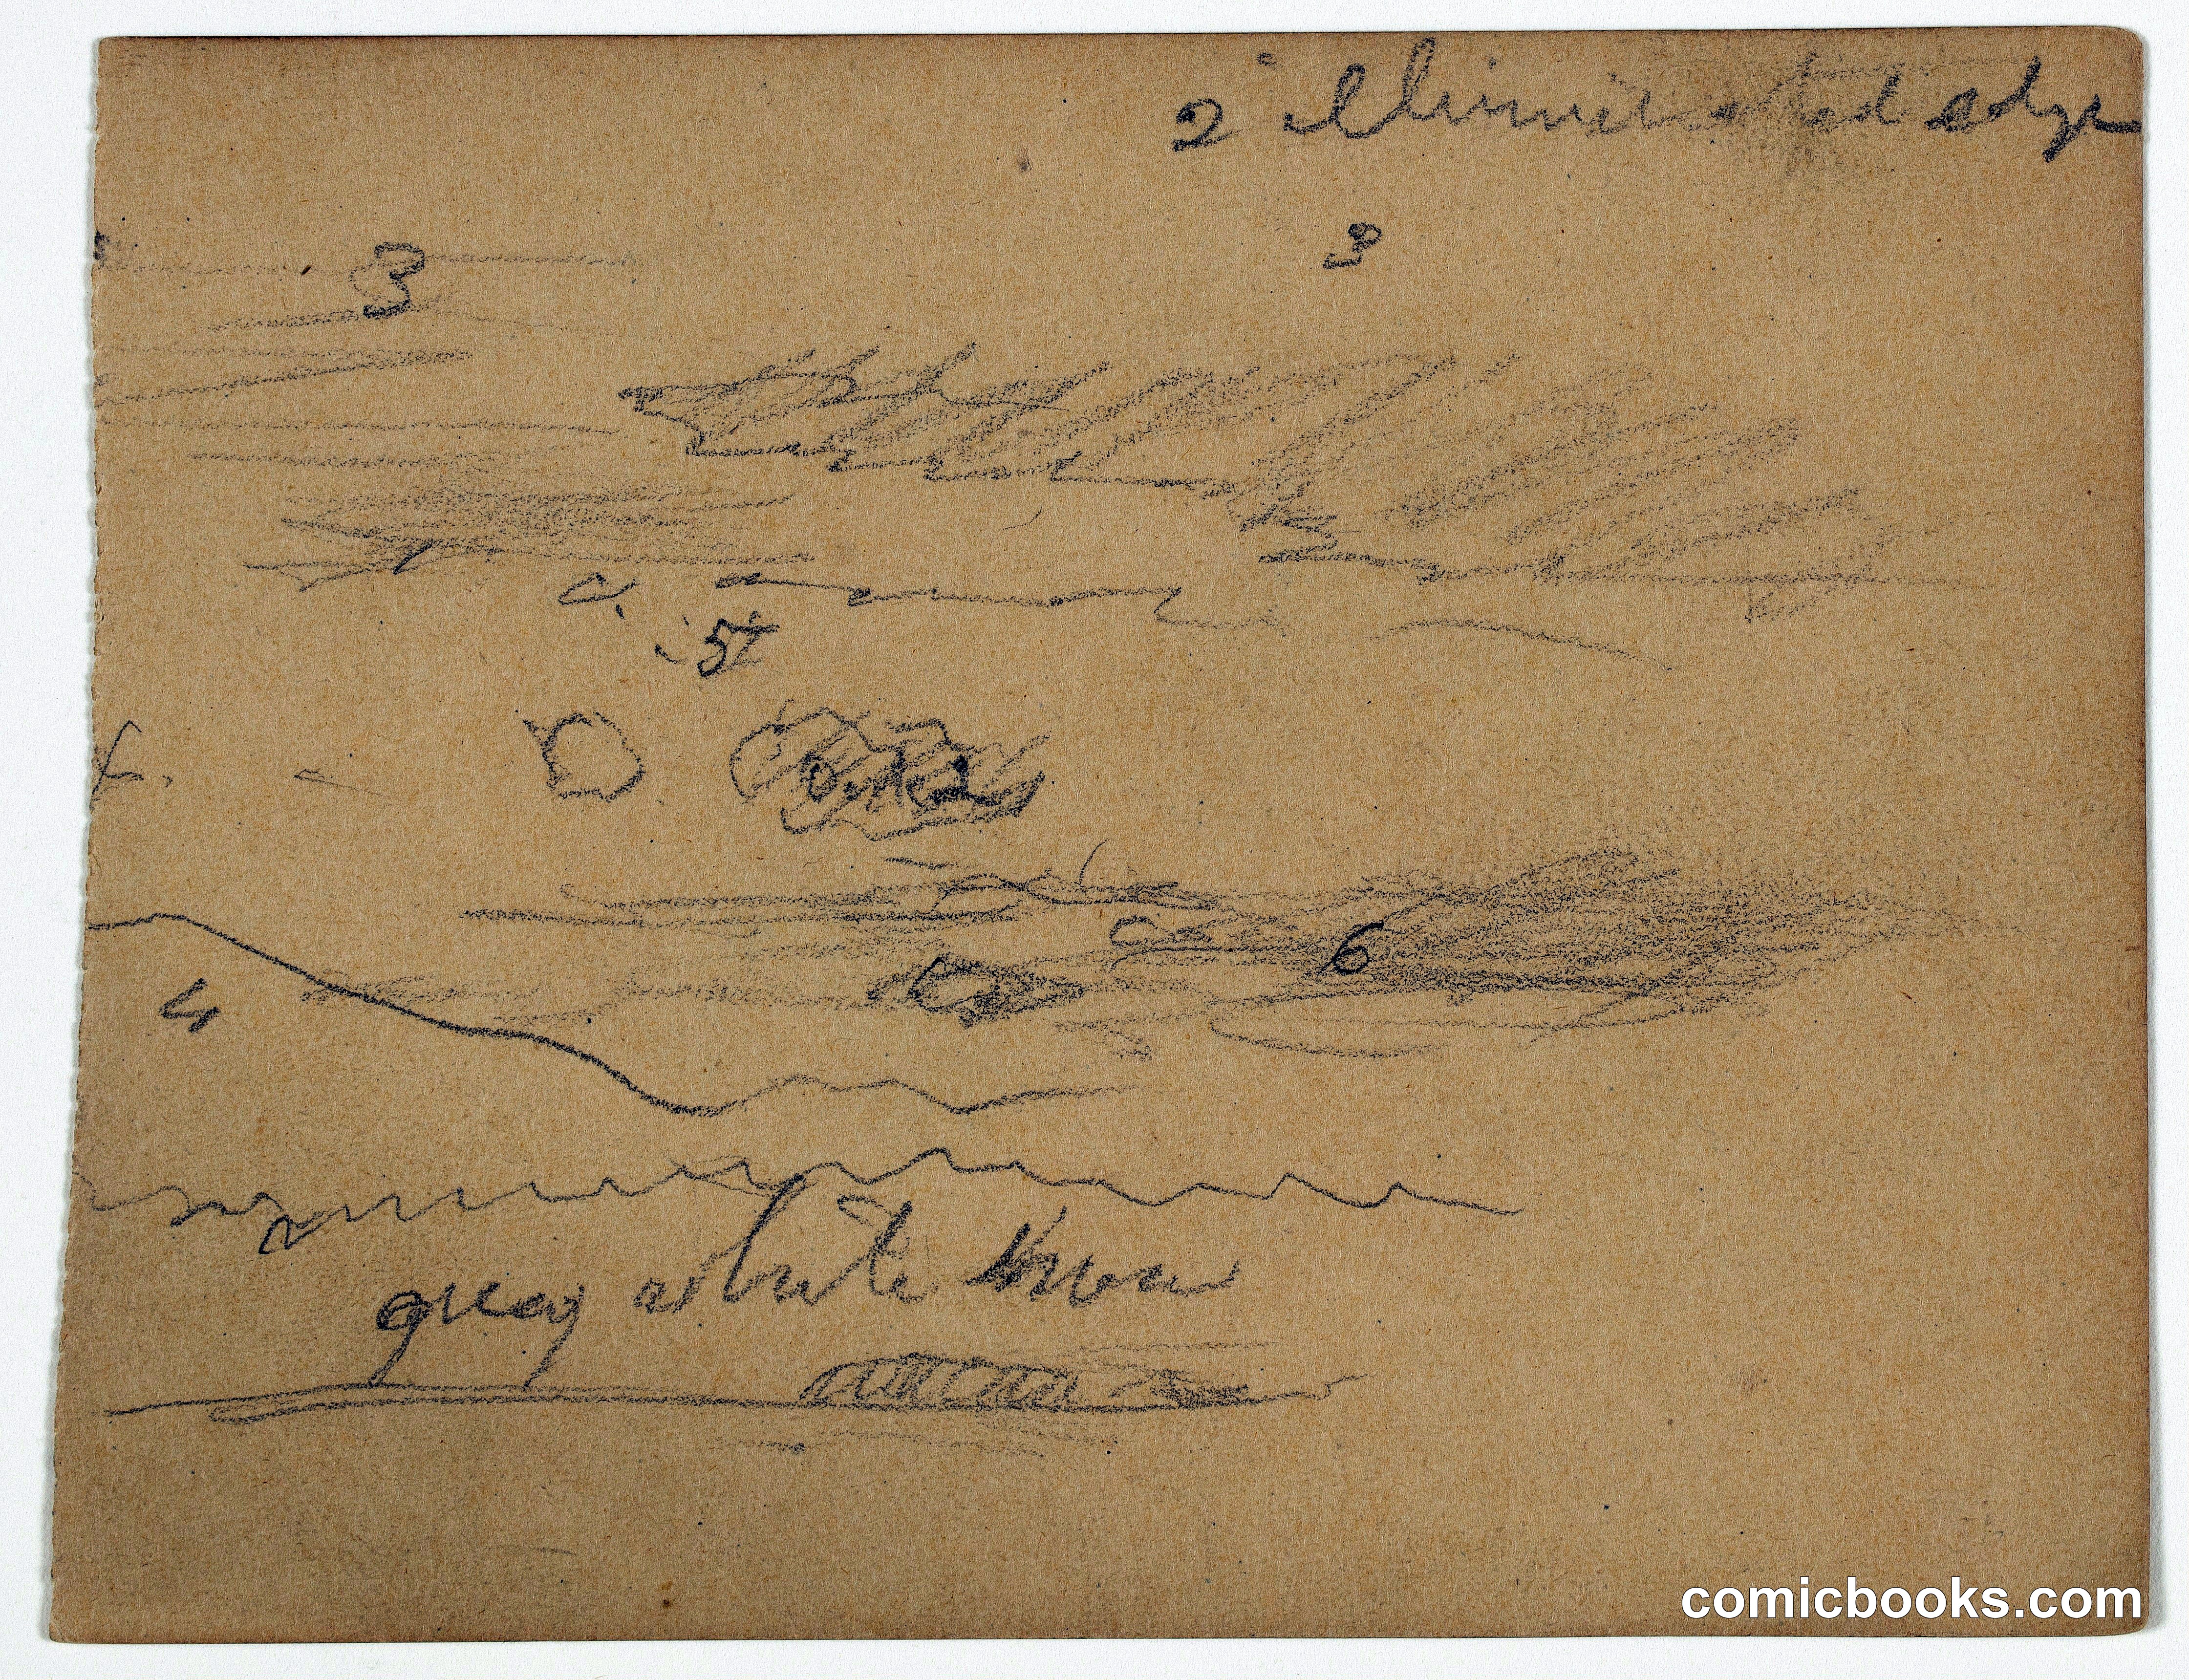 2 illuminated edge
3 3
5
6
grey white snow
comicbooks.com